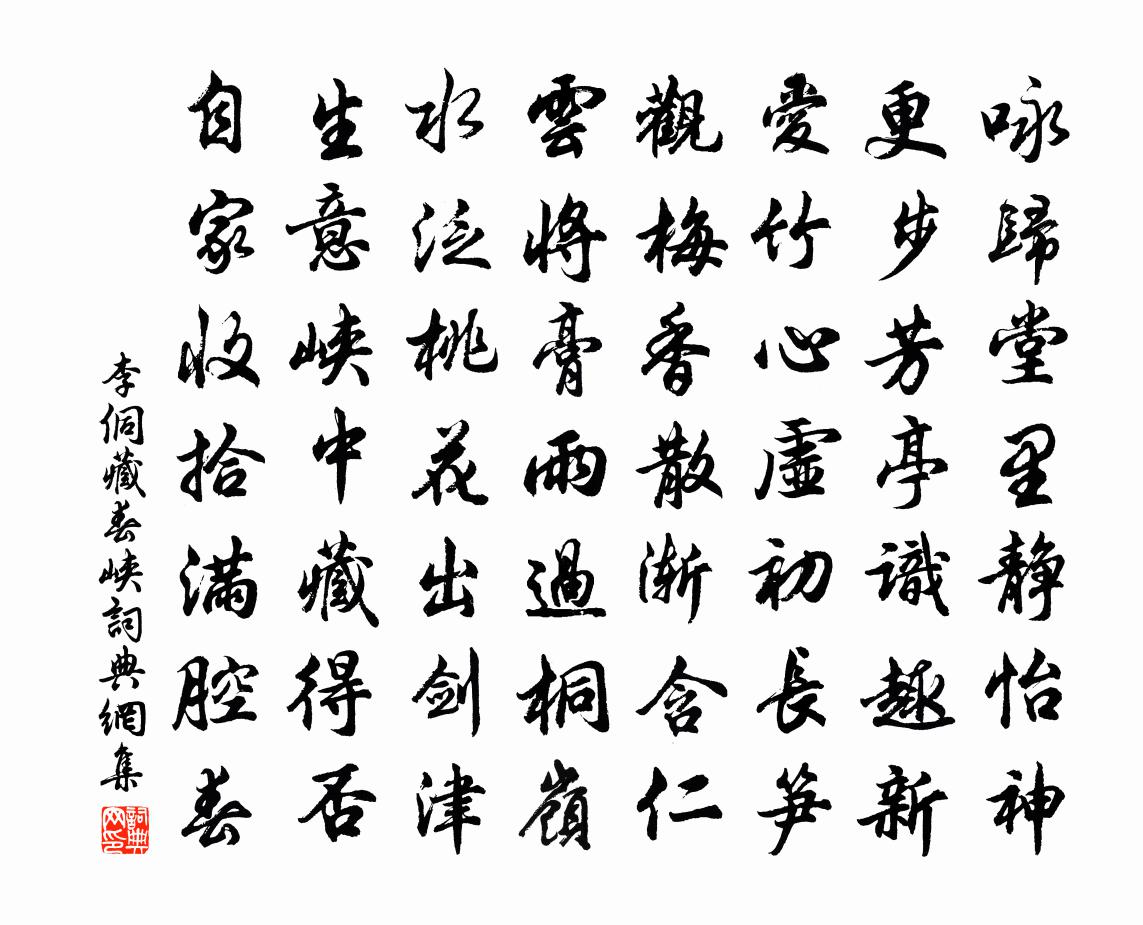 咏歸堂里静怡神
更步芳亭識趣新
愛竹心虛初長笋
觀梅香散漸含仁
雲將膏雨過桐嶺
水泛桃花出剑津
生意峽中藏得否
自家收拾滿腔春
李侗藏春峽詞典網集
詞典网印